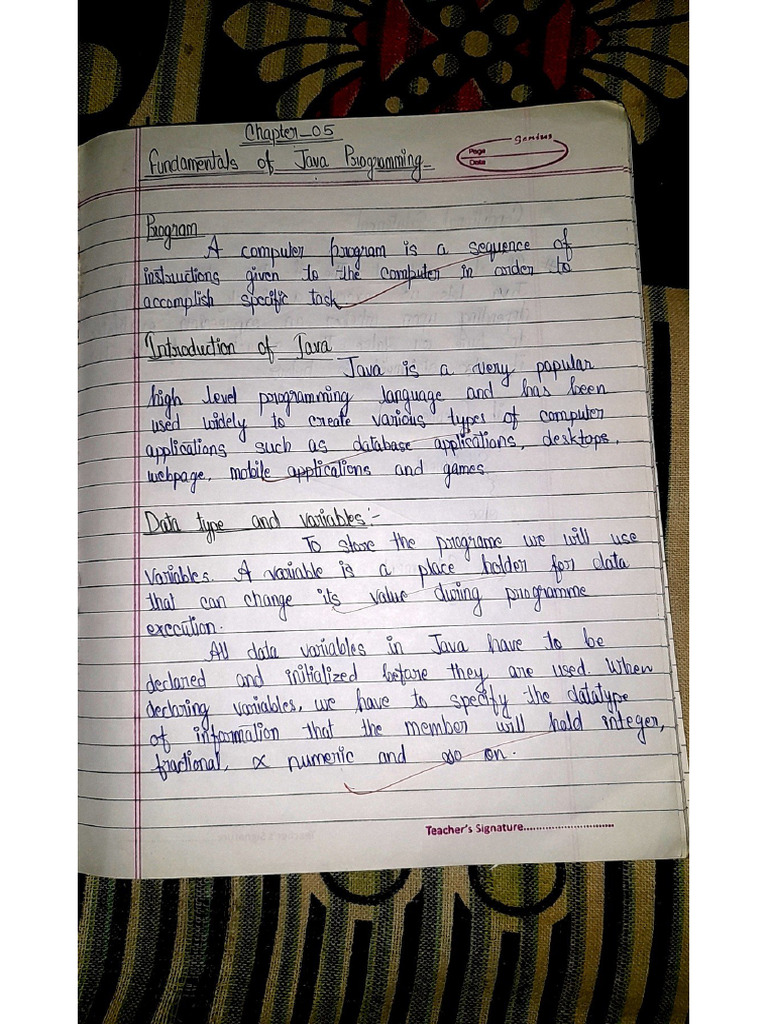 Chapter-05
Fundamentals of Java Programming
genius
Page
Date
Program
A computer program is a sequence of
instructions given to the computer in order to
accomplish specific task
Introduction of Java
Java is a very popular
high level programming language and has been
used widely to create various types of computer
applications such as database applications, desktops,
webpage, mobile applications and games.
Data type and variables:-
To store the programe we will use
variables. A variable is a place holder for data
that can change its value during programme
execution.
All data variables in Java have to be
declared and initialized before they are used. When
declaring variables, we have to specify the datatype
of information that the member will hold integer,
fractional, α numeric and so on.
Teacher's Signature..............................